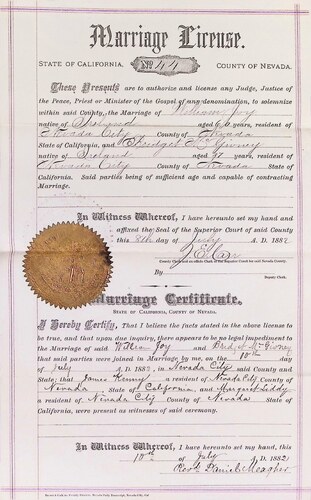 Marriage License.
No 44
STATE OF CALIFORNIA, COUNTY OF NEVADA.
These Presents are to authorize and license any Judge, Justice of
the Peace, Priest or Minister of the Gospel of any denomination, to solemnize
within said County, the Marriage of William Joy
native of Ireland aged 60 years, resident of
Nevada City County of Nevada
State of California, and Bridget McGivney
native of Ireland aged years, resident of
Nevada City County of Nevada State of
California. Said parties being of sufficient age and capable of contracting
Marriage.
In Witness Whereof, I have hereunto set my hand and
affixed the Seal of the Superior Court of said County
this 8th day July A. D. 1882
County Clerk and ex-officio Clerk of the Superior Court for said Nevada County.
By
Deputy Clerk.
Marriage Certificate.
STATE OF CALIFORNIA, COUNTY OF NEVADA.
I Hereby Certify, That I believe the facts stated in the above license
to be true, and that upon due inquiry, there appears to be no legal impediment to the
Marriage of said Wm Joy and Bridget McGivney
that said parties were joined in Marriage by me, on the 10th day
of July A. D. 1882, in Nevada City said County and
State; that James Kenny a resident of Nevada City County of
Nevada State of California, and Margaret Liddy
a resident of Nevada City County of Nevada State of
California, were present as witnesses of said ceremony.
In Witness Whereof, I have hereunto set my hand this
10th of July A. D. 1882
Revd Daniel Meagher